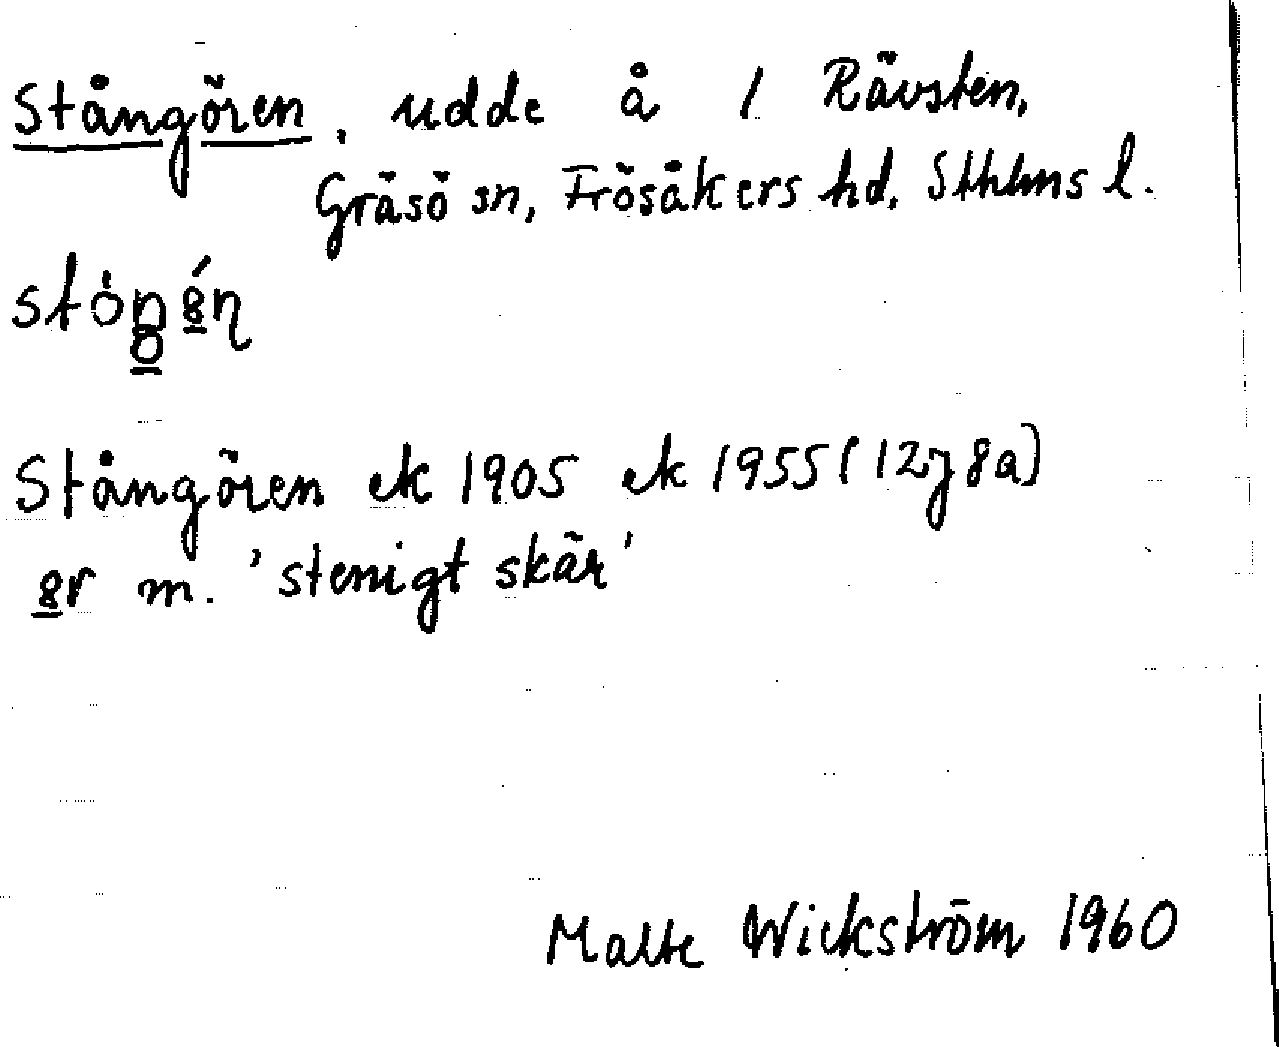 Stångören, udde å / Rävsten,
Gräsö sn, Frösåkers hd. Sthlms l.
Stångören ek 1905 ek 1955 (12j8a)
m. 'stenigt skär'
Malte Wickström 1960